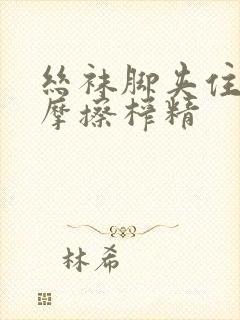 丝袜脚夹住
摩擦榨精
林希